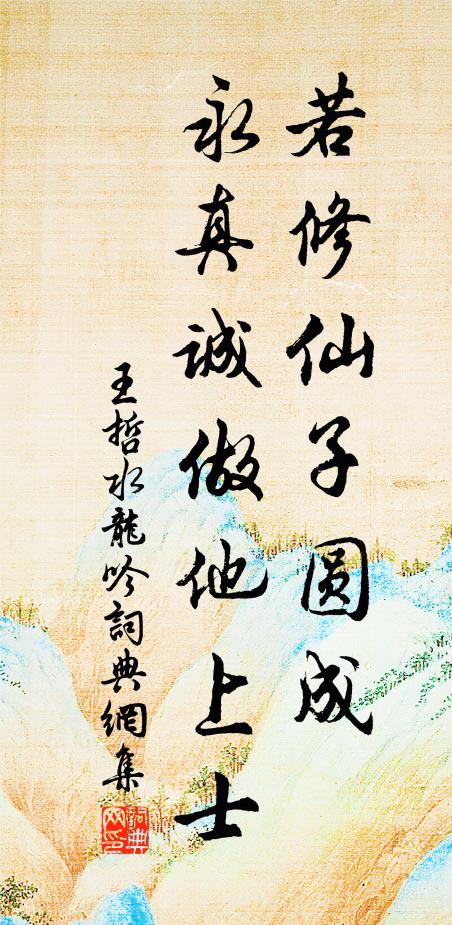 若修仙子圆成
永真诚做他上士
王哲水龍吟詞典網集
詞典
网印